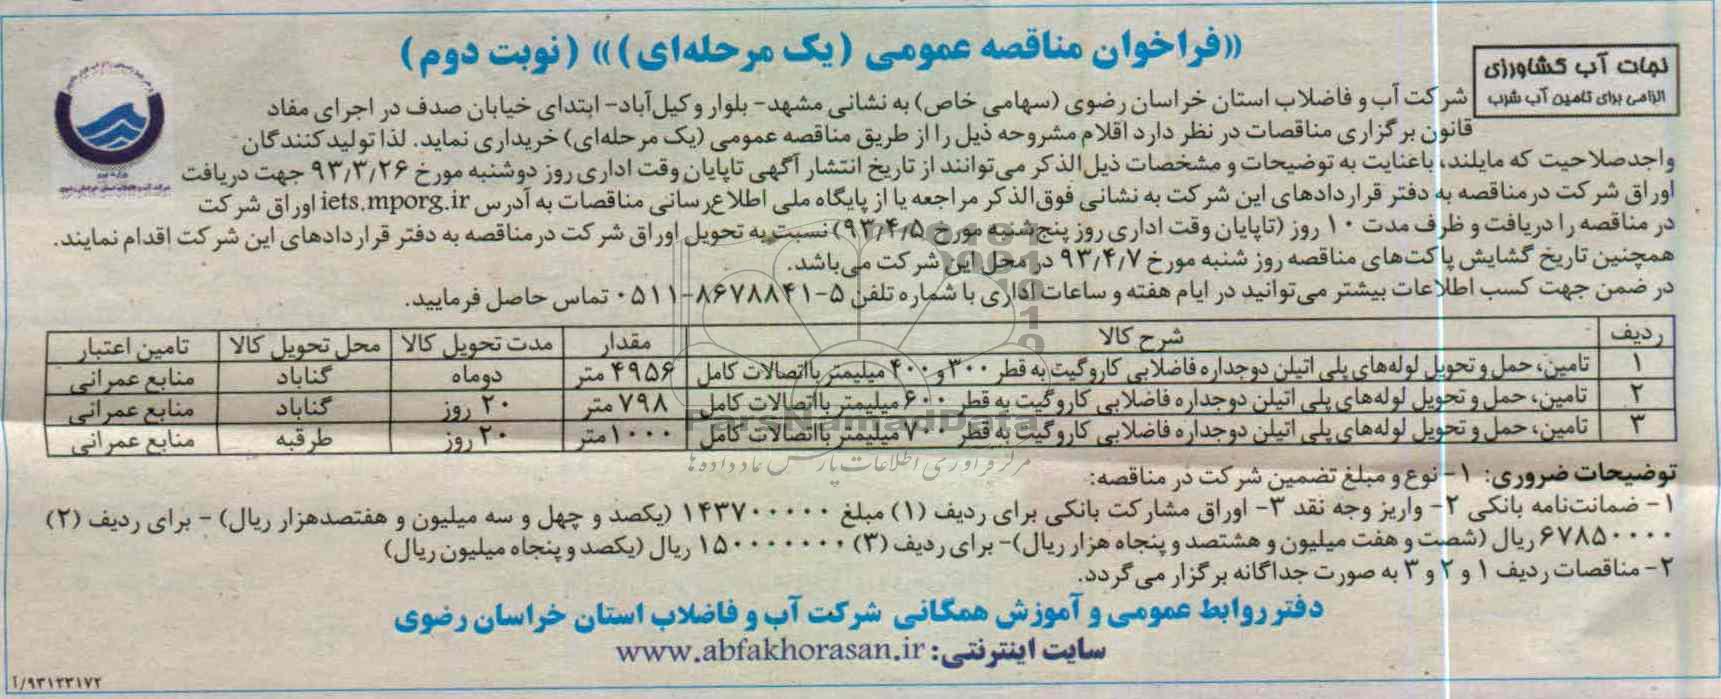 «فراخوان مناقصه عمومی (یک مرحله‌ای)» (نوبت دوم)
نجات آب کشاورزی
الزامی برای تامین آب شرب
شرکت آب و فاضلاب استان خراسان رضوی (سهامی خاص) به نشانی مشهد- بلوار وکیل‌آباد- ابتدای خیابان صدف در اجرای مفاد
قانون برگزاری مناقصات در نظر دارد اقلام مشروحه ذیل را از طریق مناقصه عمومی (یک مرحله‌ای) خریداری نماید. لذا تولیدکنندگان
واجد صلاحیت که مایلند، باعنایت به توضیحات و مشخصات ذیل‌الذکر می‌توانند از تاریخ انتشار آگهی تاپایان وقت اداری روز دوشنبه مورخ ۹۳٫۳٫۲۶ جهت دریافت
اوراق شرکت درمناقصه به دفتر قراردادهای این شرکت به نشانی فوق‌الذکر مراجعه یا از پایگاه ملی اطلاع‌رسانی مناقصات به آدرس iets.mporg.ir اوراق شرکت
در مناقصه را دریافت و ظرف مدت ۱۰ روز (تاپایان وقت اداری روز پنج‌شنبه مورخ ۹۳٫۴٫۵) نسبت به تحویل اوراق شرکت درمناقصه به دفتر قراردادهای این شرکت اقدام نمایند.
همچنین تاریخ گشایش پاکت‌های مناقصه روز شنبه مورخ ۹۳٫۴٫۷ در محل این شرکت می‌باشد.
در ضمن جهت کسب اطلاعات بیشتر می‌توانید در ایام هفته و ساعات اداری با شماره تلفن ۵-۸۶۷۸۸۴۱-۰۵۱۱ تماس حاصل فرمایید.
ردیف شرح کالا مقدار مدت تحویل کالا محل تحویل کالا تامین اعتبار
۱ تامین، حمل و تحویل لوله‌های پلی اتیلن دوجداره فاضلابی کاروگیت به قطر ۳۰۰ و ۴۰۰ میلیمتر بااتصالات کامل ۴۹۵۶ متر دوماه گناباد منابع عمرانی
۲ تامین، حمل و تحویل لوله‌های پلی اتیلن دوجداره فاضلابی کاروگیت به قطر ۶۰۰ میلیمتر بااتصالات کامل ۷۹۸ متر ۲۰ روز گناباد منابع عمرانی
۳ تامین، حمل و تحویل لوله‌های پلی اتیلن دوجداره فاضلابی کاروگیت به قطر ۷۰۰ میلیمتر بااتصالات کامل ۱۰۰۰ متر ۲۰ روز طرقبه منابع عمرانی
ParsNamadData
مرکز فرآوری اطلاعات پارس نماد داده ها
توضیحات ضروری: ۱- نوع و مبلغ تضمین شرکت در مناقصه:
۱- ضمانت‌نامه بانکی ۲- واریز وجه نقد ۳- اوراق مشارکت بانکی برای ردیف (۱) مبلغ ۱۴۳۷۰۰۰۰۰ (یکصد و چهل و سه میلیون و هفتصدهزار ریال) - برای ردیف (۲)
۶۷۸۵۰۰۰۰ ریال (شصت و هفت میلیون و هشتصد و پنجاه هزار ریال)- برای ردیف (۳) ۱۵۰۰۰۰۰۰۰ ریال (یکصد و پنجاه میلیون ریال)
۲- مناقصات ردیف ۱ و ۲ و ۳ به صورت جداگانه برگزار می‌گردد.
دفتر روابط عمومی و آموزش همگانی شرکت آب و فاضلاب استان خراسان رضوی
سایت اینترنتی: www.abfakhorasan.ir
۹۳۱۲۳۱۷۲/آ